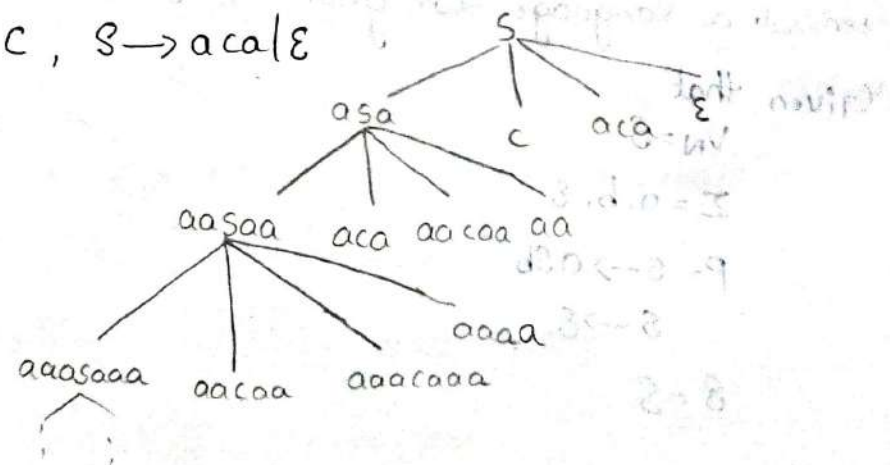 C , S → aca|ε
S
asa c aca ε
aasaa aca aacaa aa
aaasaaa aacaa aaacaaa aaaa